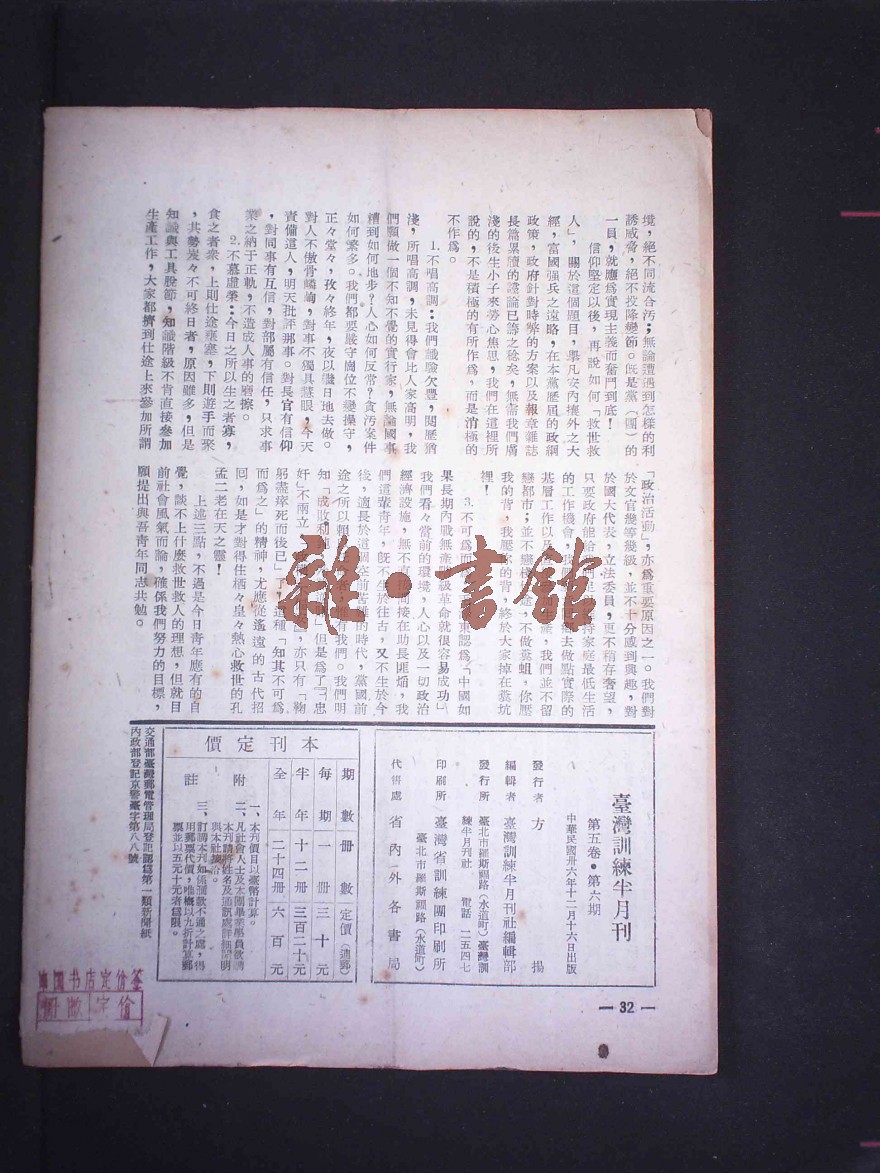 境,絕不同流合汚;無論遭遇到怎樣的利
誘威脅,絕不投降變節。旣是黨(團)的
一員,就應爲實現主義而奮鬥到底!
信仰堅定以後,再說如何「救世救
人」,關於這個題目,舉凡安內攘外之大
經,富國强兵之遠略,在本黨歷屆的政綱
政策,政府針對時弊的方案以及報章雜誌
長篇累牘的讜論已籌之稔矣,無需我們廣
淺的後生小子來勞心焦思,我們在這裡所
說的,不是積極的有所作爲,而是消極的
不作爲。
1.不唱高調:我們體驗欠豐,閱歷猶
淺,所唱高調,未見得會比人家高明,我
們願做一個不知不覺的實行家,無論國事
糟到如何地步?人心如何反常?貪汚案件
如何繁多。我們都要嚴守崗位不變操守,
正々堂々,孜々終年,夜以繼日地去做。
對人不傲骨嶙峋,對事不獨具謎眼,今天
責備這人,明天批評那事。對長官有信仰
,對同事有互信,對部屬有信任,只求事
業之納于正軌,不造成人事的磨擦。
2.不慕虛榮::今日之所以生之者寡,
食之者衆,上則仕途壅塞,下則遊手而聚
,其勢岌々不可終日者,原因雖多,但是
知識與工具脫節,知識階級不肯直接參加
生產工作,大家都擠到仕途上來參加所謂
「政治活動」,亦爲重要原因之一。我們對
於文官幾等幾級,並不十分感到興趣,對
於國大代表,立法委員,更不稍存奢望,
只要政府能給我們
持家庭最低生活
的工作機會,我
鄉去做點實際的
基層工作以及
產,我們並不留
戀都市;並不戀
途,不做黃蛆,你壓
我的背,我壓你的背,終於大家掉在糞坑
裡!
3.不可爲而
認爲「中國如
果長期內戰無產階級革命就很容易成功」
我們看々當前的環境,人心以及一切政治
經濟設施,無不直接間接在助長匪焰,我
們這輩青年,旣不生於往古,又不生於今
後,適長於這個空前苦難的時代,黨國前
途之所以賴
惟有我們。我們明
知「成敗利鈍
」但是爲了「忠
奸」不兩立
亦只有「鞠
躬盡瘁死而後已」了,這種「知其不可爲
而爲之」的精神,尤應從遙遠的古代招
回,如是才對得住栖々皇々熱心救世的孔
孟二老在天之靈!
上述三點,不過是今日青年應有的自
覺,談不上什麼救世救人的理想,但就目
前社會風氣而論,確係我們努力的目標,
願提出與吾青年同志共勉。
雜·書館
臺灣訓練半月刊
第五卷·第六期
中華民國卅六年十二月十六日出版
發行者 方 揚
編輯者 臺灣訓練半月刊社編輯部
發行所 臺北市羅斯福路(水道町)臺灣訓
練半月刊社 電話 二五四七
印刷所 臺灣省訓練團印刷所
臺北市羅斯福路(水道町)
代售處 省內外各書局
本刊定價
期數 册數 定價(連郵)
每期 一册 三十元
半年 十二册 三百二十元
全年 二十四册 六百元
附註
一、本刊價目以臺幣計算。
二、凡社會人士及本團畢業學員欲購
本刊請將姓名及通訊處詳細開明
與本社接洽。
三、訂購本刊如係滙款不通之處,得
用郵票代價,唯槪以九折計算郵
票並以五元十元者爲限。
交通部臺灣郵電管理局登記認爲第一類新聞紙
內政部登記京警臺字第八八號
— 32 —
中国书店定价签
册数 定价